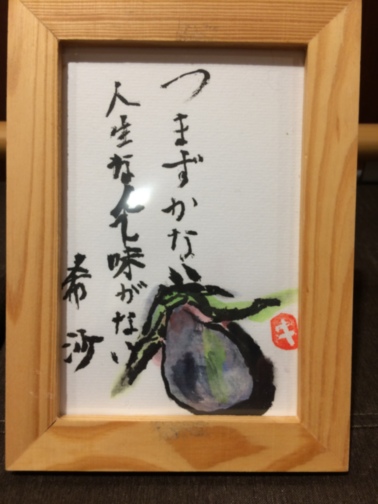 つまずかない
人生なんて味がない
希沙
キ